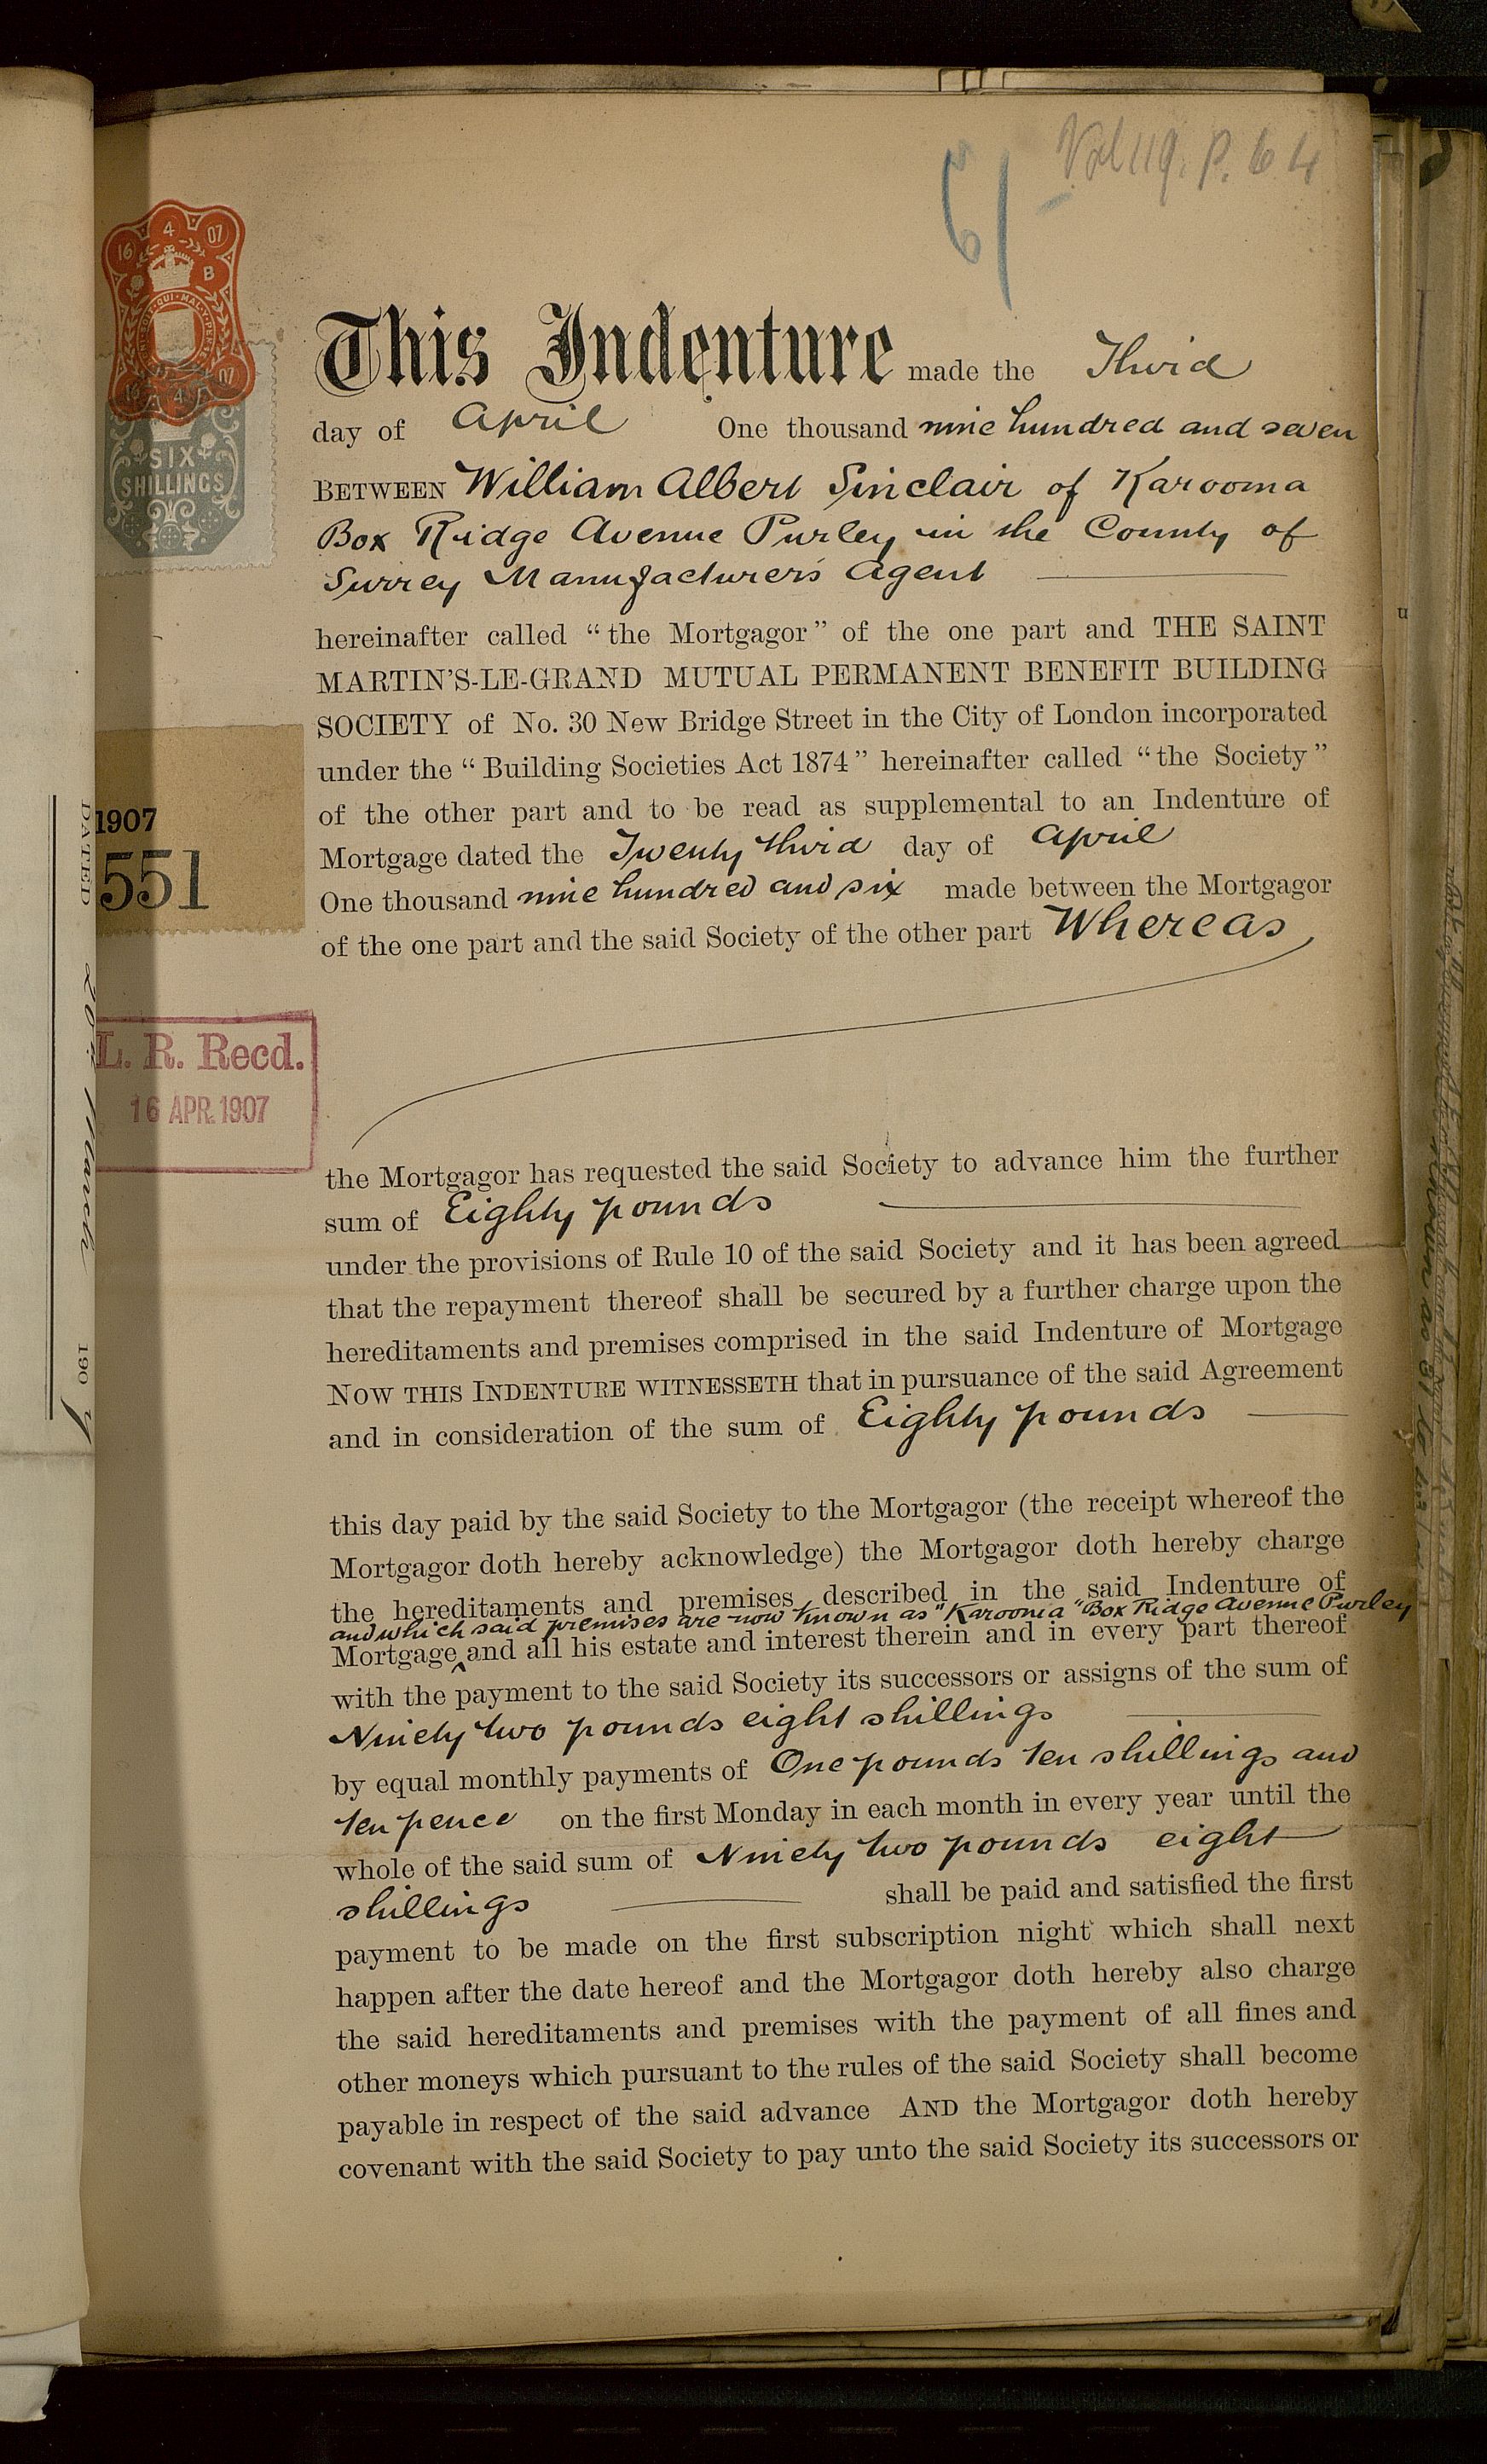 Vol 119. P. 64
6/-
16 4 07
B
HONI SOIT QUI MAL Y PENSE
16 4 07
SIX
SHILLINGS
This Indenture made the Third
day of April One thousand nine hundred and seven
BETWEEN William Albert Sinclair of Karooma
Box Ridge Avenue Purley in the County of
Surrey Manufacturers Agent
hereinafter called “the Mortgagor” of the one part and THE SAINT
MARTIN'S-LE-GRAND MUTUAL PERMANENT BENEFIT BUILDING
SOCIETY of No. 30 New Bridge Street in the City of London incorporated
under the “Building Societies Act 1874” hereinafter called “the Society”
of the other part and to be read as supplemental to an Indenture of
Mortgage dated the Twenty third day of April
One thousand nine hundred and six made between the Mortgagor
of the one part and the said Society of the other part Whereas
1907
551
L. R. Recd.
16 APR. 1907
DATED March 190 7
the Mortgagor has requested the said Society to advance him the further
sum of Eighty pounds
under the provisions of Rule 10 of the said Society and it has been agreed
that the repayment thereof shall be secured by a further charge upon the
hereditaments and premises comprised in the said Indenture of Mortgage
NOW THIS INDENTURE WITNESSETH that in pursuance of the said Agreement
and in consideration of the sum of Eighty pounds
this day paid by the said Society to the Mortgagor (the receipt whereof the
Mortgagor doth hereby acknowledge) the Mortgagor doth hereby charge
the hereditaments and premises described in the said Indenture of
and which said premises are now known as "Karooma" Box Ridge Avenue Purley
Mortgage ‸ and all his estate and interest therein and in every part thereof
with the payment to the said Society its successors or assigns of the sum of
Ninety two pounds eight shillings
by equal monthly payments of One pounds ten shillings and
ten pence on the first Monday in each month in every year until the
whole of the said sum of Ninety two pounds eight
shillings shall be paid and satisfied the first
payment to be made on the first subscription night which shall next
happen after the date hereof and the Mortgagor doth hereby also charge
the said hereditaments and premises with the payment of all fines and
other moneys which pursuant to the rules of the said Society shall become
payable in respect of the said advance AND the Mortgagor doth hereby
covenant with the said Society to pay unto the said Society its successors or